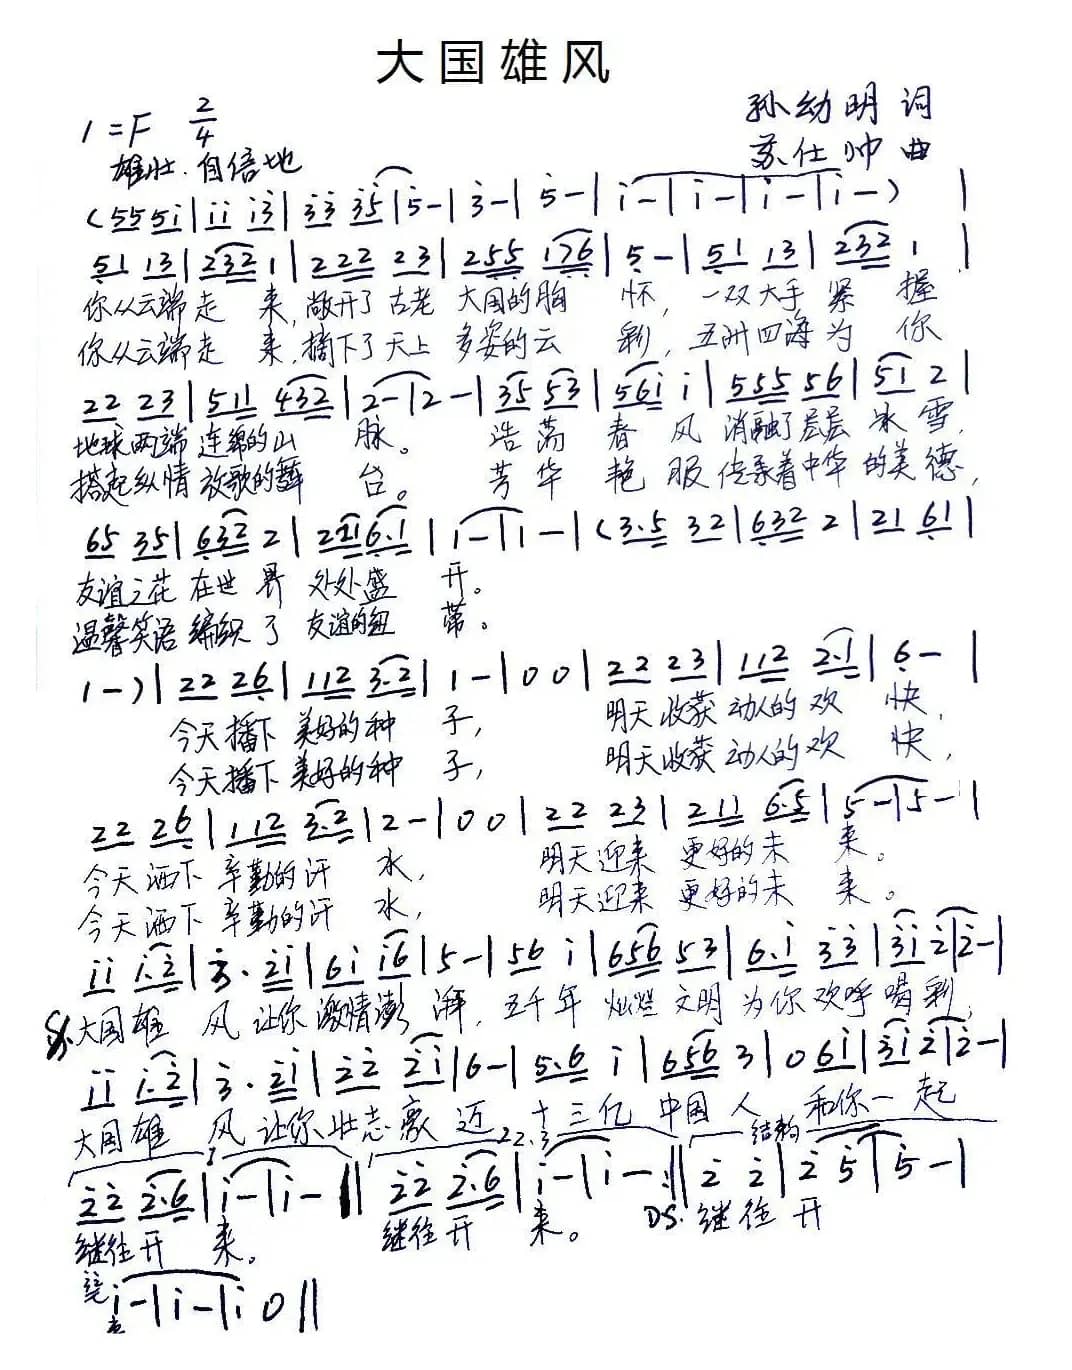 大国雄风
1=F 2/4
孙幼明 词
雄壮.自信地
苏仕帅 曲
(55 5i|ii i3|33 35|5-|3-|5-|i-|i-|i-|i-)|
51 13|232 1|222 23|255 176|5-|51 13|232 1|
你从云端走 来,敞开了古老 大国的胸 怀,一双大手紧 握
你从云端走 来,摘下了天上 多姿的云 彩,五洲四海为 你
22 23|511 432|2-|2-|35 53|56i i|555 56|51 2|
地球两端 连绵的山 脉。 浩荡 春风 消融了层层 冰雪,
搭起纵情 放歌的舞 台。 芳华 艳服 传承着中华 的美德,
65 35|632 2|221 6.1|1-|1-|(3.5 32|632 2|21 61|
友谊之花 在世界 处处盛 开。
温馨笑语 编织了 友谊的纽 带。
1-)|22 26|112 3.2|1-|00|22 23|112 2.1|6-|
今天播下 美好的种 子, 明天收获 动人的欢 快,
今天播下 美好的种 子, 明天收获 动人的欢 快,
22 26|112 3.2|2-|00|22 23|211 6.5|5-|5-|
今天洒下 辛勤的汗 水, 明天迎来 更好的未 来。
今天洒下 辛勤的汗 水, 明天迎来 更好的未 来。
ii i.2|3. 2i|6i i6|5-|56 i|656 53|6.i 33|3i 2|2-|
大国雄 风 让你 激情澎 湃,五千年 灿烂文明 为你欢呼 喝彩,
ii i.2|3. 2i|22 2i|6-|5.6 i|656 3|0 6i|3i 2|2-|
大国雄 风 让你 壮志豪 迈 十三亿 中国人 和你一 起
1 2.2.3 结构
22 2.6|i-|i-‖22 2.6|i-|i-:‖2 2|2 5|5-|
继往开 来。 继往开 来。 D.S. 继往开
i-|i-|i 0‖
来